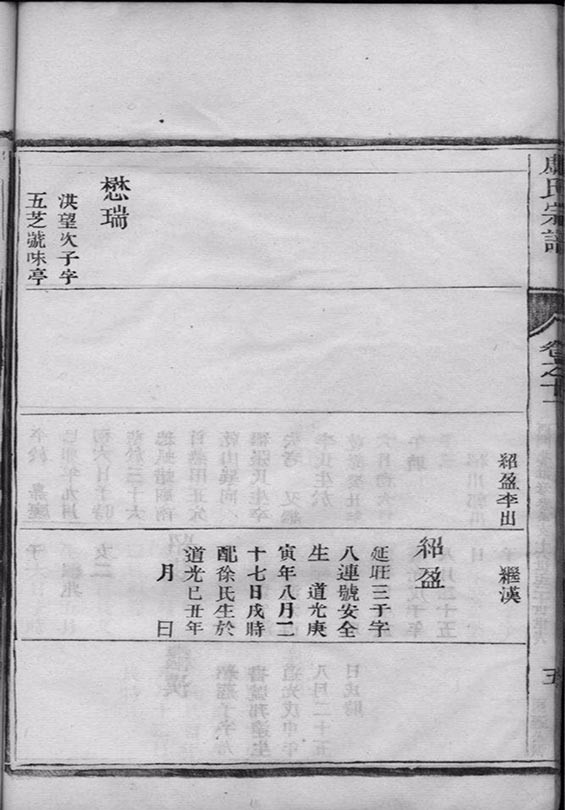 盧氏宗譜
卷之十一
五
紹盈李出
繼漢
紹盈
延旺三子字
八連號安全
生　道光庚
寅年八月二
十七日戌時
配徐氏生於
道光已丑年
月　日
懋瑞
洪望次子字
五芝號味亭